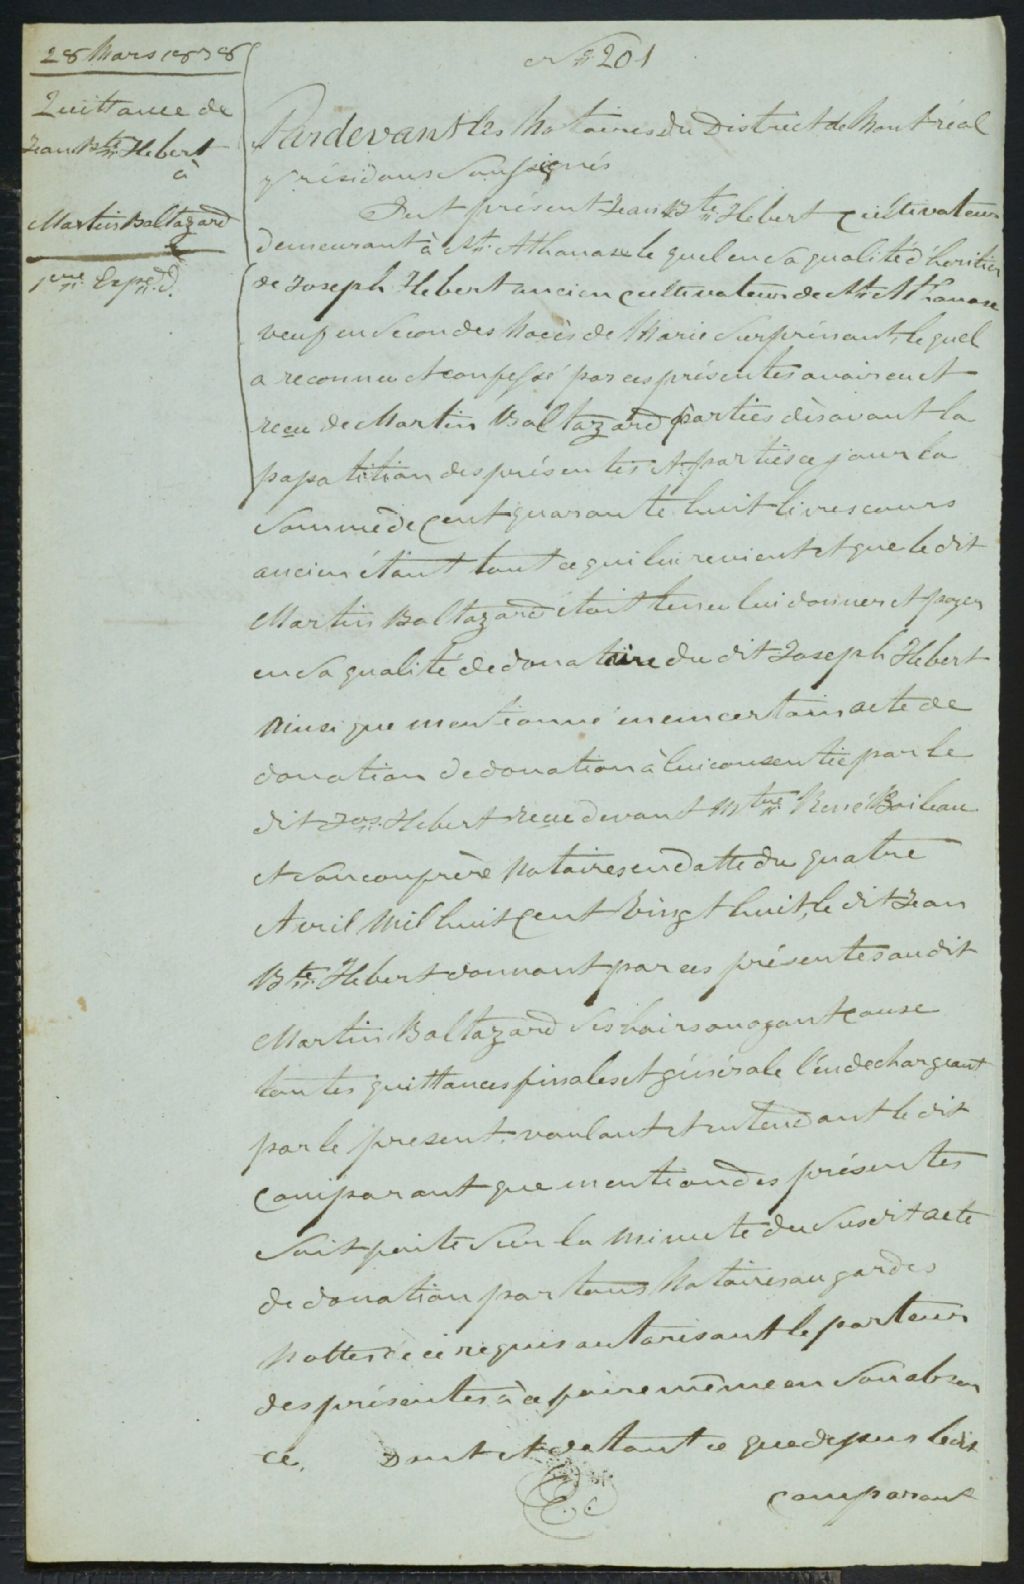 28 Mars 1838
Quittance de
Jean Bte Hebert
à
Martin Baltazard
1ere Exped.
No 201
Pardevant les Notaires du District de Montréal
y résidans Soussignés
Fut présent Jean Bte Hebert Cultivateur
demeurant à St. Athanase lequel en sa qualité d'héritier
de Joseph Hebert ancien cultivateur de St. Athanase
veuf en Secondes Noces de Marie Surprénant, lequel
a reconnu et confessé par ces présentes avoir eu et
recu de Martin Baltazard parties dès avant la
passation des présentes et parties ce jour la
Somme de Cent quarante huit livres cours
ancien étant tout ce qui lui revient et que le dit
Martin Baltazard étoit tenu lui donner et payer
en sa qualité de donataire du dit Joseph Hebert
Ainsi que mentionné en un certain acte de
donation de donation à lui consentie par le
dit Jos. Hebert recue devant Mtre René Boileau
et son confrère Notaires en datte du quatre
Avril Mil huit Cent Vingt huit, le dit Jean
Bte. Hebert donnant par ces présentes au dit
Martin Baltazard Ses hoirs ou ayant Cause
toutes quittances finales et générale l'en dechargeant
par le present. voulant et entendant le dit
Comparant que mention des présentes
Soit faite Sur la Minute du Susdit acte
de donation par tous Notaires ou gardes
Nottes de ce requis autorisant le porteur
des présentes à ce faire même en Son absen
ce. Dont et de tout ce que dessus le dit
Comparant